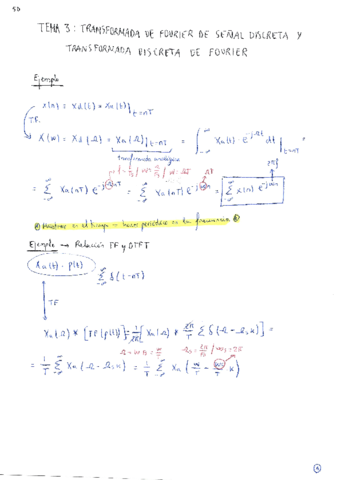 TEMA 3: TRANSFORMADA DE FOURIER DE SEÑAL DISCRETA Y
TRANSFORMADA DISCRETA DE FOURIER
Ejemplo
x(n) = Xd(t) = Xa(t)|t=nT
TF
X(w) = Xd(Ω) = Xa(Ω)|t=nT = ∫ Xa(t) · e^-jΩt dt |t=nT
transformada analógica
= Σ Xa(nT) e^-jΩnT = Σ Xa(nT) e^-jwn = Σ x(n) e^-jwn
en el tiempo — hacer periódico en la frecuencia
Ejemplo → Relación TF y DTFT
Xa(t) · p(t)
Σ δ(t-nT)
TF
Xa(Ω) * [TF{p(t)}] = 1/2π [Xa(Ω) * 2π/T Σ δ(Ω - Ωs k)] =
= 1/T Σ Xa(Ω - Ωs k) = 1/T Σ Xa(w/T - ws/T k)